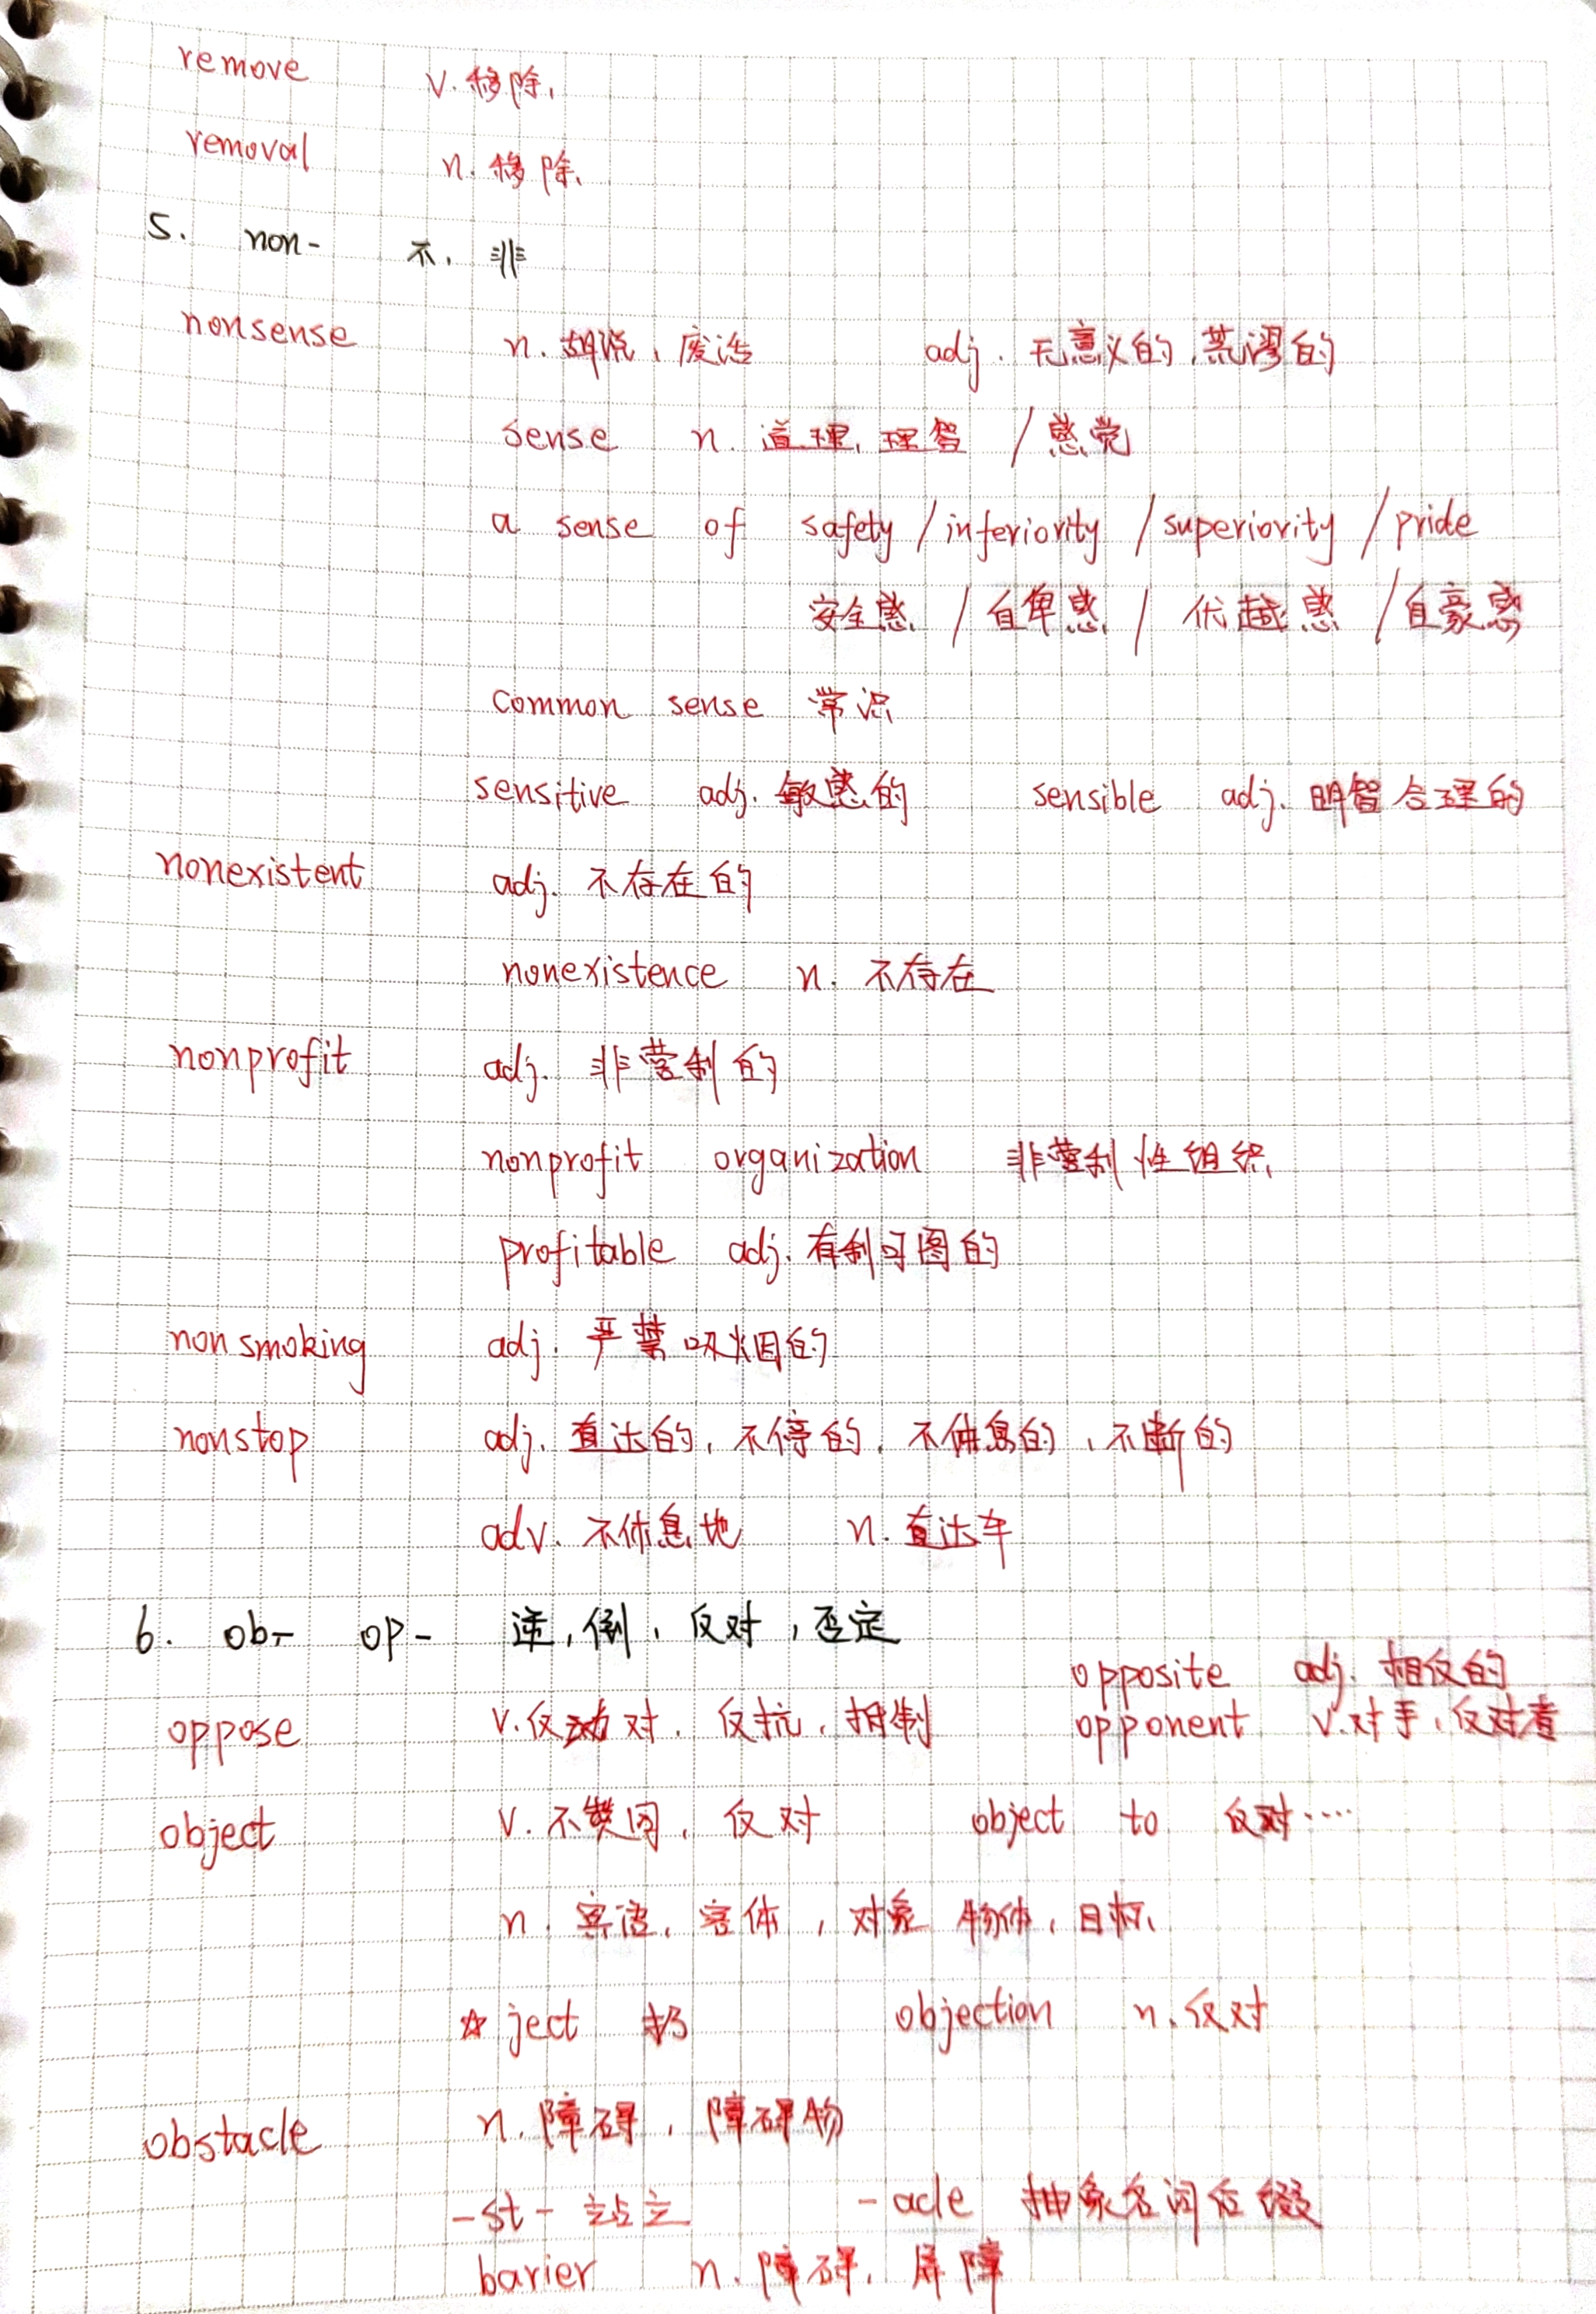 remove v. 移除、
removal n. 移除、
5. non- 不、非
nonsense n. 胡说、废话 adj. 无意义的、荒谬的
sense n. 道理、理智 / 感觉
a sense of safety / inferiority / superiority / pride
安全感 / 自卑感 / 优越感 / 自豪感
common sense 常识
sensitive adj. 敏感的 sensible adj. 明智合理的
nonexistent adj. 不存在的
nonexistence n. 不存在
nonprofit adj. 非营利的
nonprofit organization 非营利性组织
profitable adj. 有利可图的
nonsmoking adj. 严禁吸烟的
nonstop adj. 直达的、不停的、不休息的、不断的
adv. 不休息地 n. 直达车
6. ob- op- 逆,倒、反对,否定
opposite adj. 相反的
oppose v. 反对、反抗、抵制 opponent v. 对手、反对者
object v. 不赞同、反对 object to 反对....
n. 宾语、客体,对象 物体、目标、
☆ ject 扔 objection n. 反对
obstacle n. 障碍、障碍物
-st- 站立 -acle 抽象名词后缀
barier n. 障碍、屏障